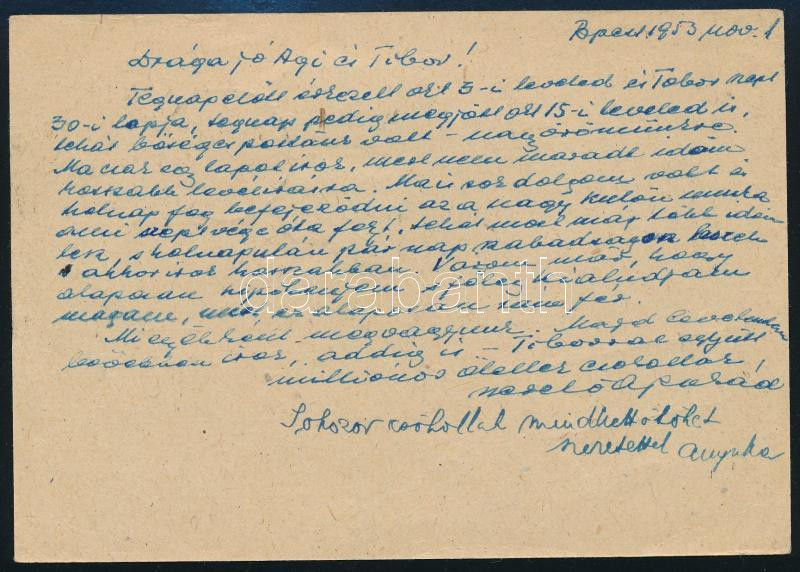 Bpest, 1953 nov. 1
Drága jó Ági és Tibor!
Tegnapelőtt érkezett okt 3-i leveled és Tibor szept
30-i lapja, tegnap pedig megjött okt 15-i leveled is,
tehát bőséges postánk volt – nagy örömünkre.
Ma csak egy lapot írok, mert nem maradt időm
hosszabb levélírásra. Ma is sok dolgom volt és
holnap fog befejeződni az a nagy külön munka
ami napi vége óta folyt, tehát most már több időm
lesz, s holnapután pár nap szabadságon leszek
s akkor írok hosszabban. Várom már, hogy
alaposan kipihenjem s jól kialudjam
magam, mert
Miegyébként megvagyunk. Majd
bővebben írok, addig is – Tiborral együtt
milliónos ölellek csókollak
szerető Apukád
Sokszor csókollak mindkettőtöket
szeretettel Anyuka
darabanth